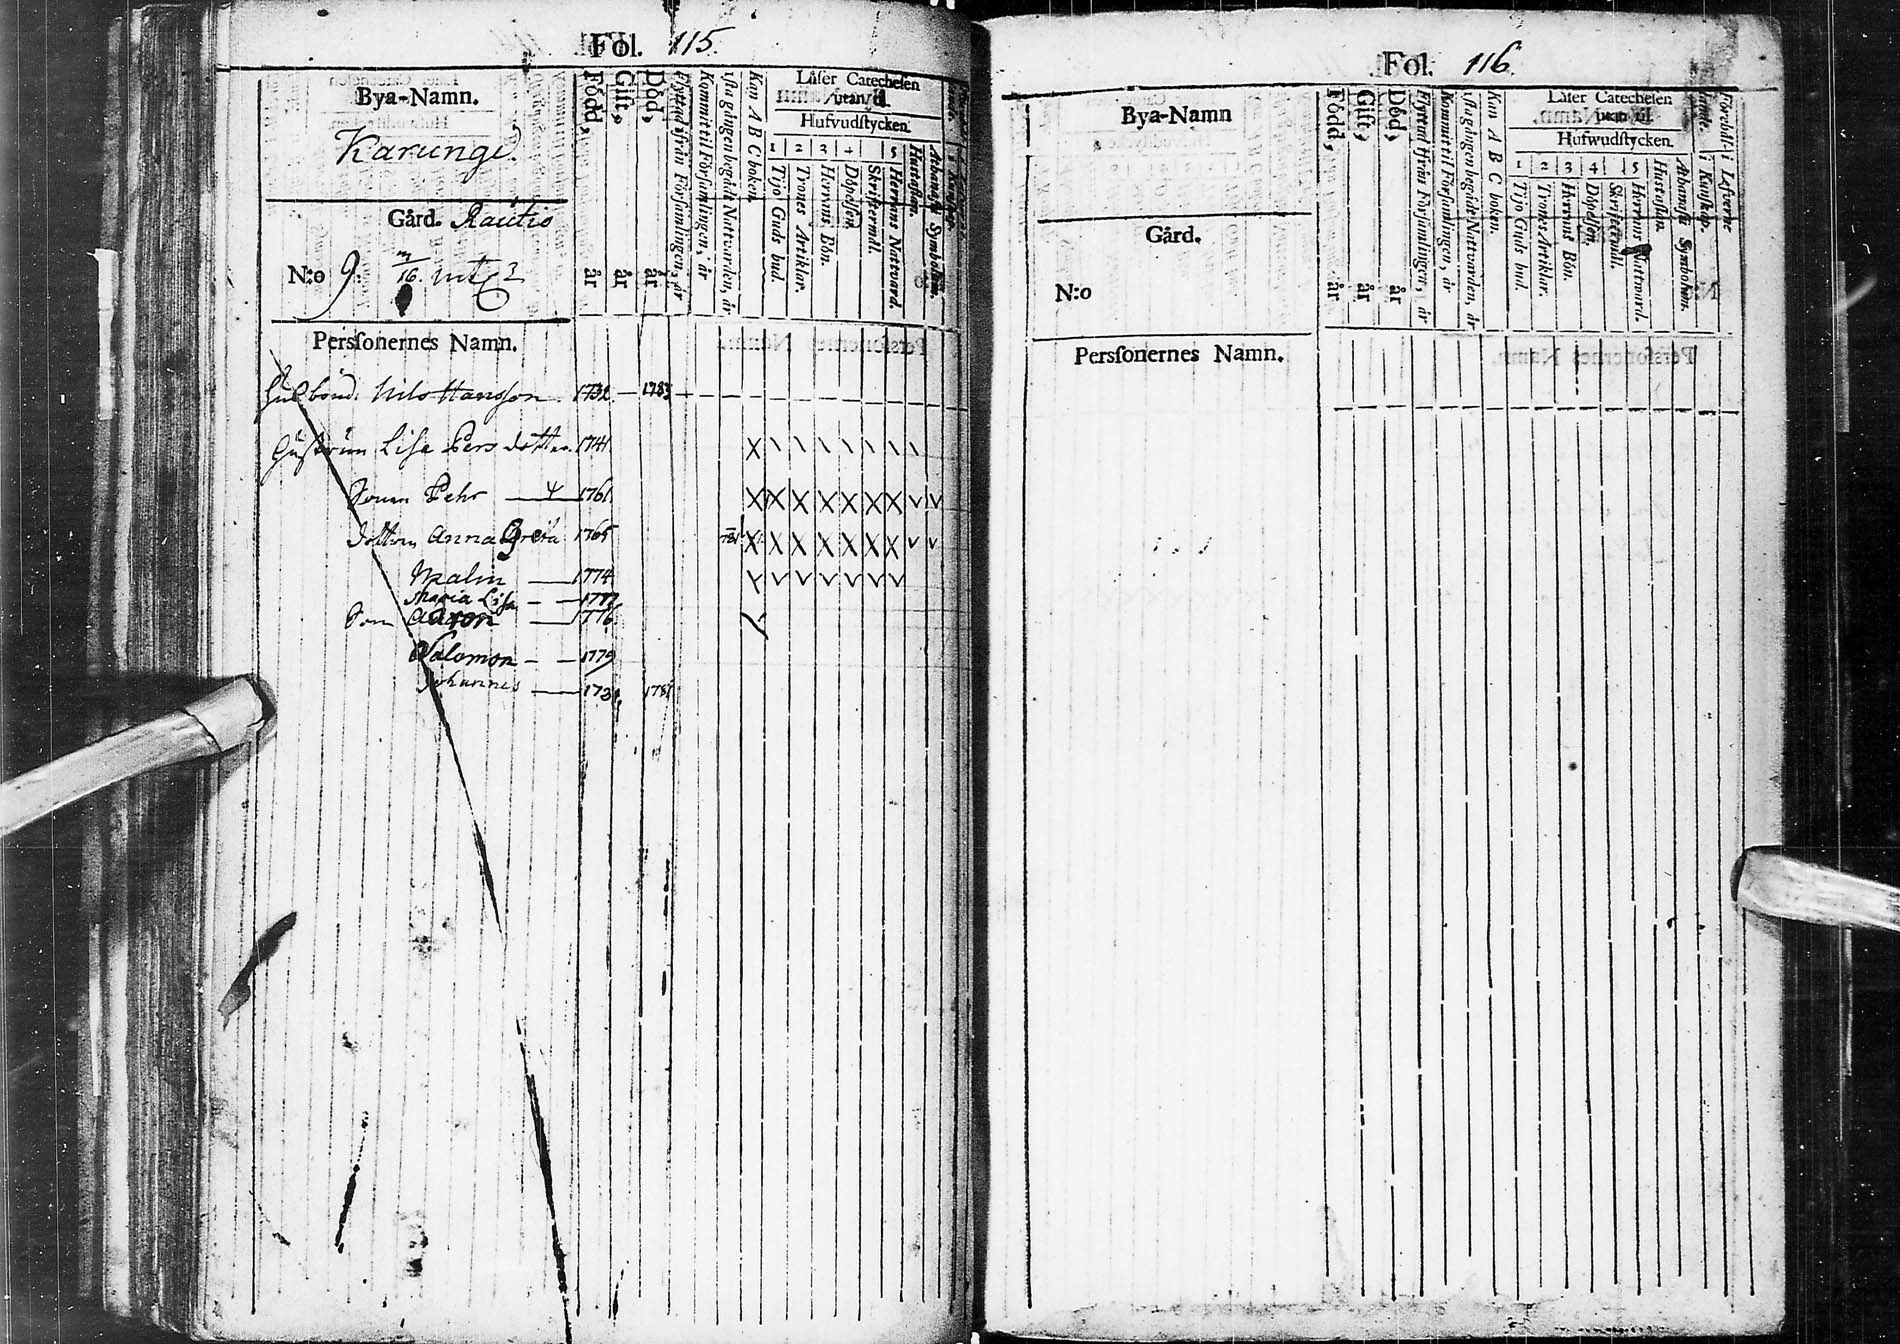 Fol. 115.
Bya-Namn.
Karungi.
Gård. Rautio
N:o 9. 16.
Född, år
Gift, år
Död, år
Flyttad ifrån Församlingen, år
Kommit til Församlingen, år
1sta gången begådt Nattvarden, år
Kan A B C boken.
Läser Catechesen
utan til.
Hufvudstycken.
1 2 3 4 5
Tijo Guds bud.
Trones Artiklar.
Herrans Bön.
Döpelsen.
Skriftermål.
Herrans Nattvard.
Hustaflan.
Athanasii Symbolum.
Perssonernes Namn.
Husbond. Nils Hansson 1732 — 1783
Hustrun Lisa Persdotter. 1741
Sonen Pehr 1761
Dottren Anna Greta 1765
Malin 1774
Maria Lisa 1777
Son Aaron 1776
Salomon 1779
Johannes 1781
Fol. 116.
Bya-Namn
Gård.
N:o
Född, år
Gift, år
Död, år
Flyttad ifrån Församlingen, år
Kommit til Församlingen, år
1sta gången begådt Nattvarden, år
Kan A B C boken.
Läser Catechesen
utan til.
Hufwudstycken.
1 2 3 4 5
Tijo Guds bud.
Trones Artiklar.
Herrans Bön.
Döpelsen.
Skriftermål.
Herrans Nattward.
Hustaflan.
Athanasii Symbolum.
i Kunskap.
i Lefverne
Perssonernes Namn.